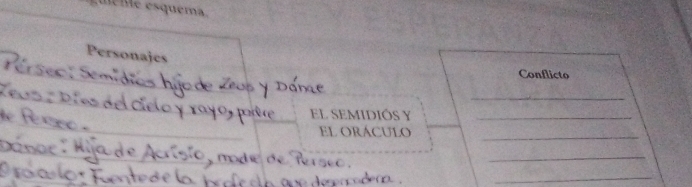 esquema.
Personajes
Perseo: Semidios hijo de Zeus y Dánae
Zeus: Dios del cielo y rayo, padre
de Perseo.
Dánae: Hija de Acrisio, madre de Perseo.
Oráculo: Fuente de la
EL SEMIDIÓS Y
EL ORÁCULO
Conflicto